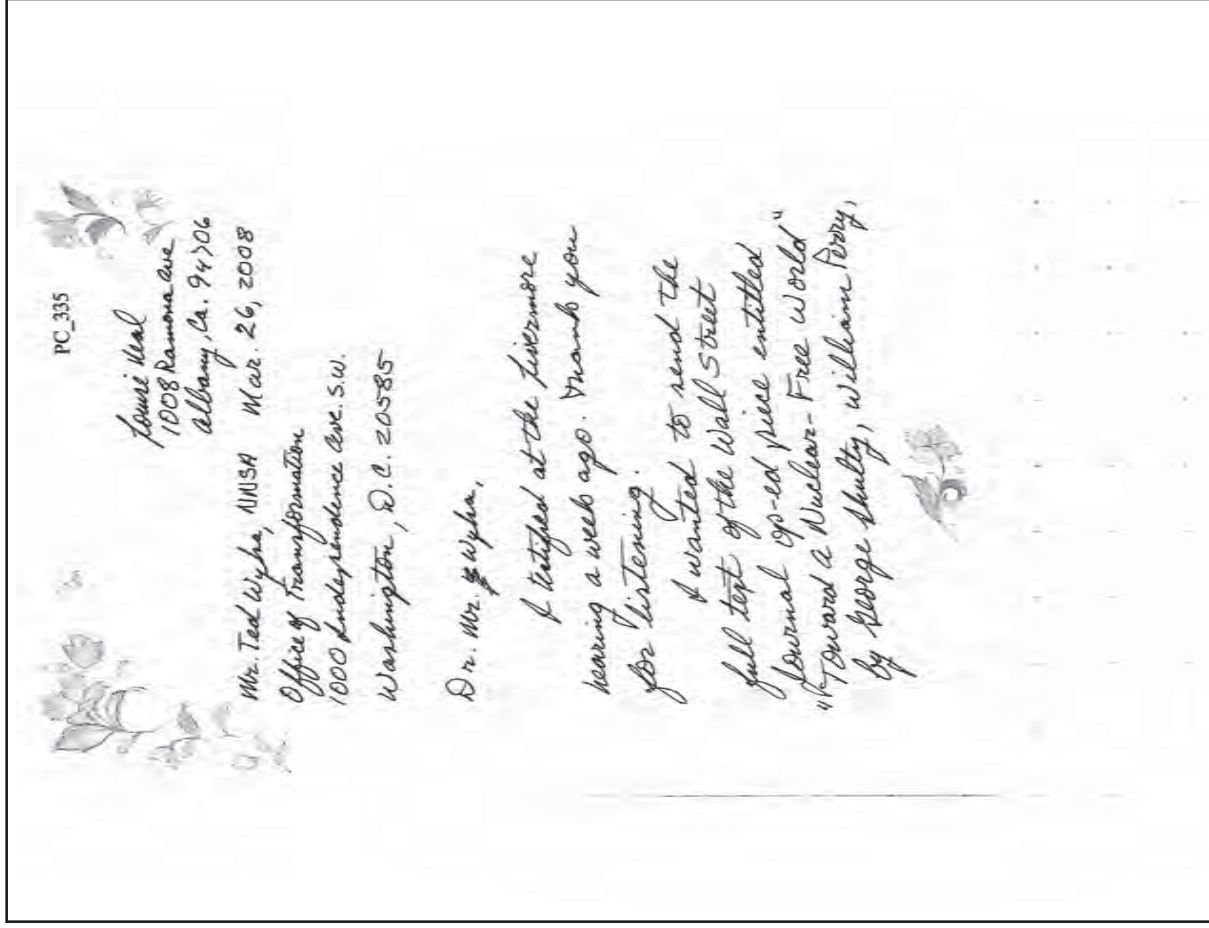 PC_335
Louise
1008 Ramona Ave
Albany, Ca. 94706
Mr. Ted Wyka, NNSA Mar. 26, 2008
Office of Transformation
1000 Independence Ave. S.W.
Washington, D.C. 20585
Dr. Mr. Wyka,
I testified at the Livermore
hearing a week ago. Thank you
for listening.
I wanted to send the
full text of the Wall Street
Journal op-ed piece entitled
"Toward a Nuclear-Free World"
by George Shultz, William Perry,